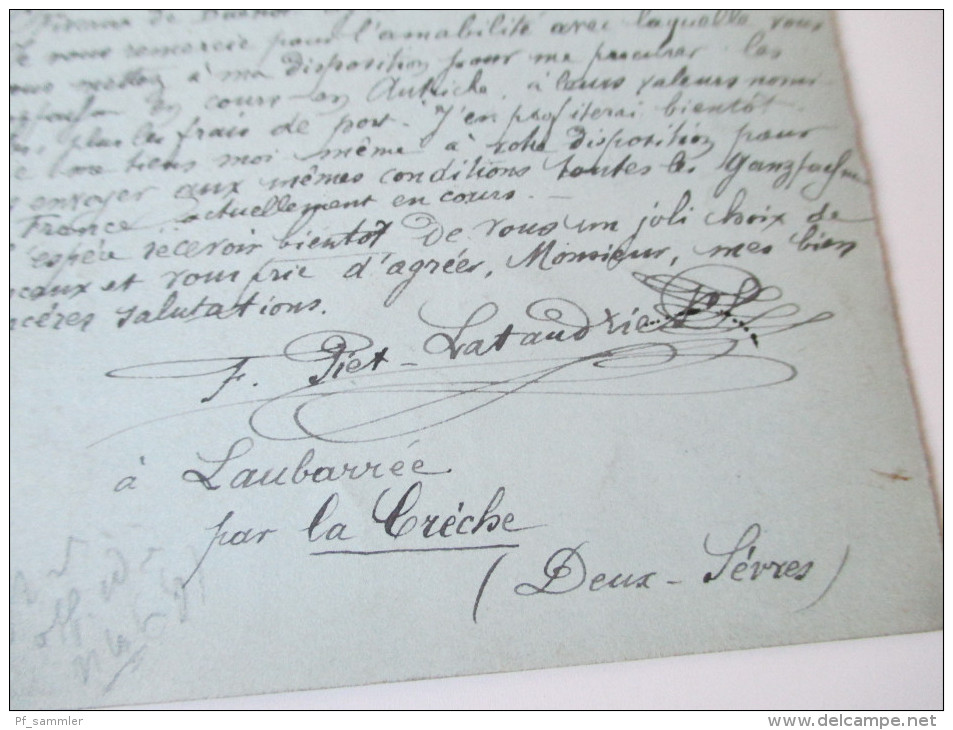 de Buenos
vous remercie pour l'amabilité avec laquelle vous
mettez à ma disposition pour me procurer les
en cours en Autriche, à leurs valeurs nomi-
plus les frais de port. J'en profiterai bientôt.
me tiens moi même à votre disposition pour
envoyer aux mêmes conditions toutes les Ganzsachen
France actuellement en cours. –
espère recevoir bientôt de vous un joli choix de
et vous prie d'agréer, Monsieur, mes bien
salutations.
F. Piet-Lataudrie
à Laubarrée
par la Crèche
(Deux-Sèvres)
Pf_sammler
www.delcampe.net